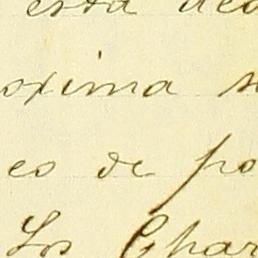 esta dea
oxima s
eo de po
Los Char